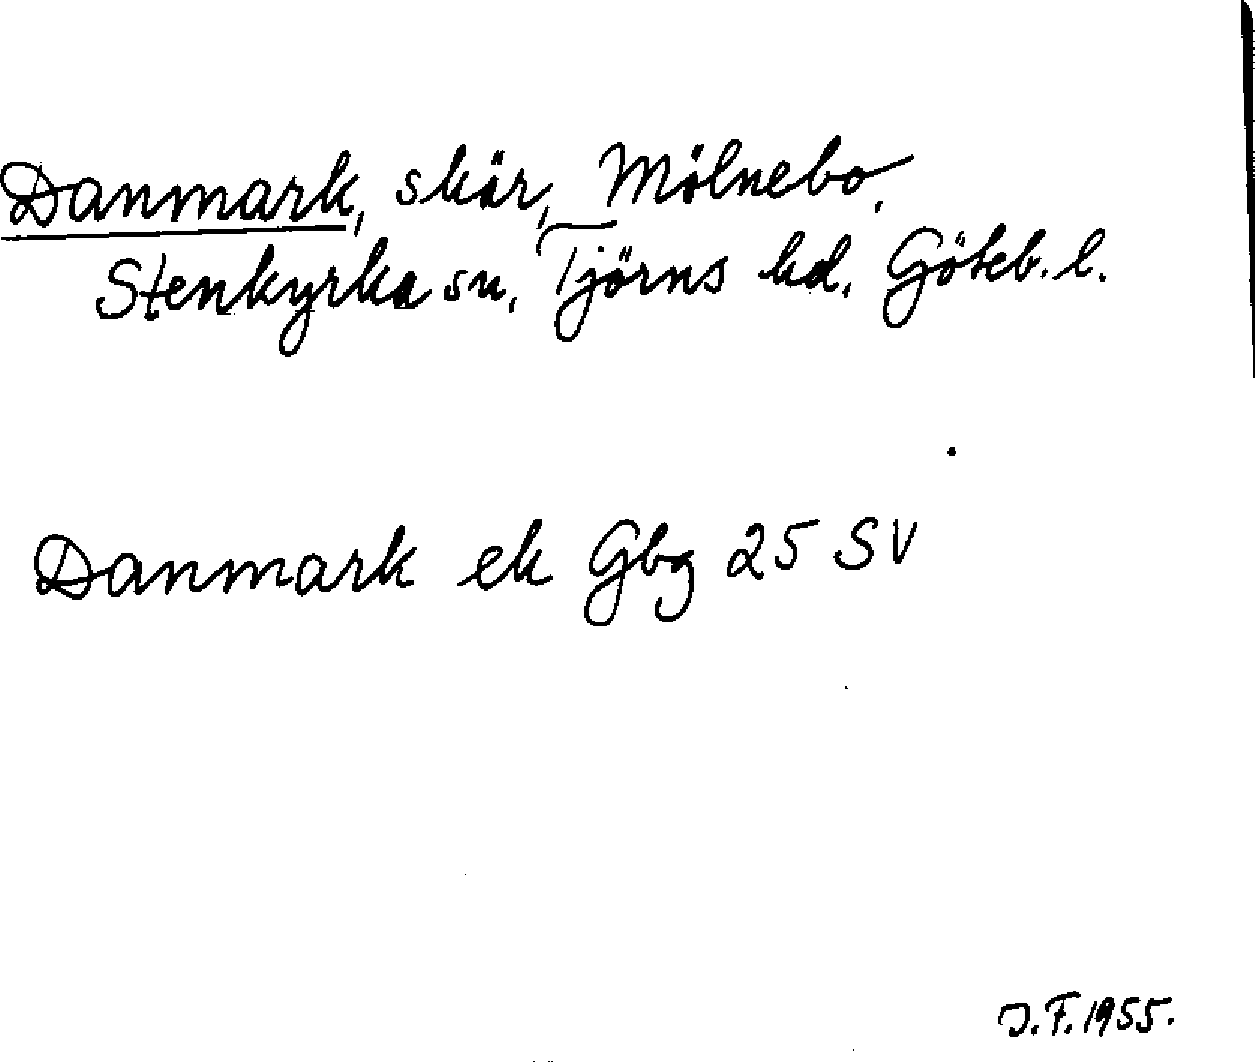 Danmark, skär, Mölnebo,
Stenkyrka sn, Tjörns hd, Göteb. l.
Danmark ek Gbg 25 SV
J.F. 1955.